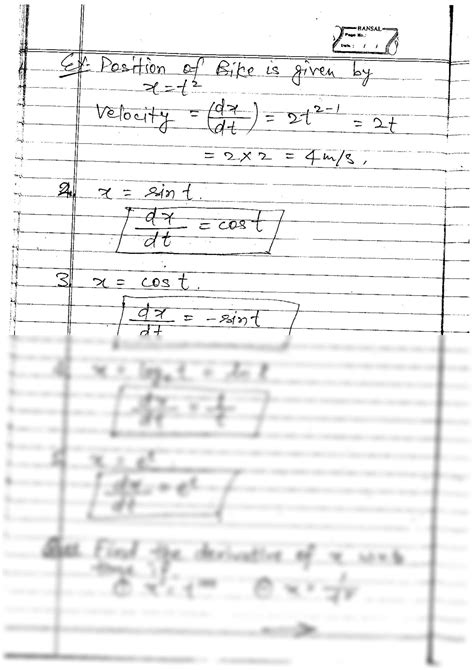 BANSAL
Page No.:
Date: / /
Ex: Position of Bike is given by
x = t²
Velocity = (dx/dt) = 2t²⁻¹ = 2t
= 2 × 2 = 4 m/s.
2. x = sin t.
dx/dt = cos t
3. x = cos t.
dx/dt = -sin t
x = logₑ t = ln t
dx/dt = 1/t
x = eᵗ
dx/dt = eᵗ
Find the derivative of x w.r.t
time if